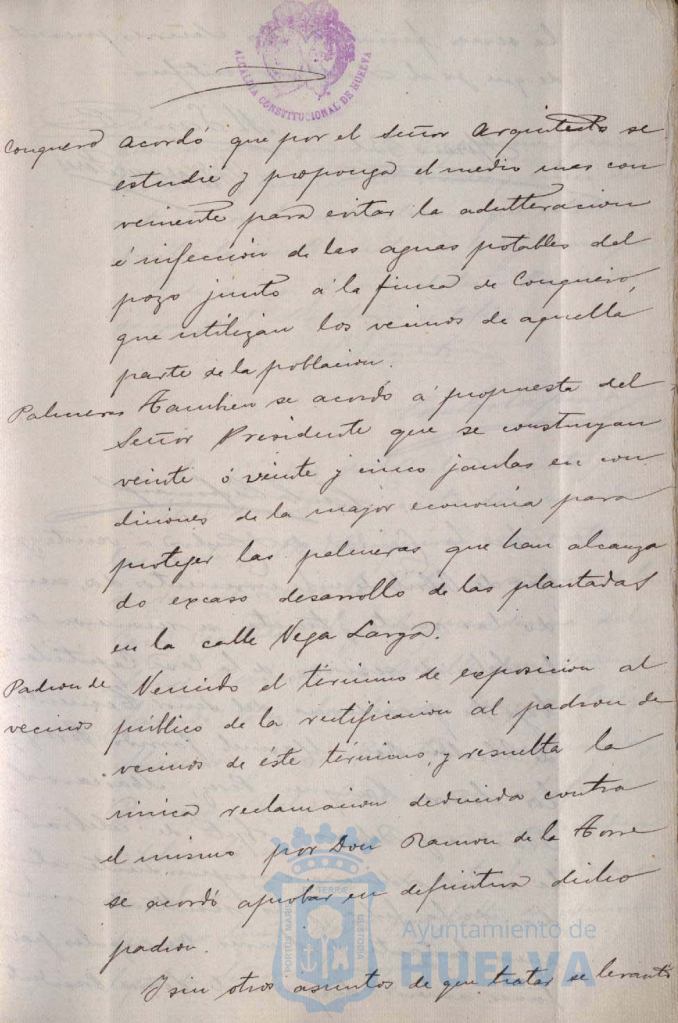 ALCALDIA CONSTITUCIONAL DE HUELVA
Conquero acordó que por el Señor Arquitecto se
estudie y proponga el medio mas con
veniente para evitar la adulteracion
é infección de las aguas potables del
pozo junto á la finca de Conquero,
que utilizan los vecinos de aquella
parte de la poblacion.
Palmeras Tambien se acordó á propuesta del
Señor Presidente que se construyan
veinte ó veinte y cinco jaulas en con
diciones de la mayor economia para
proteger las palmeras que han alcanza
do escaso desarrollo de las plantadas
en la calle Vega Larga.
Padron de Vencido el término de exposicion al
vecinos público de la rectificacion al padron de
vecinos de éste término, y resuelta la
única reclamacion deducida contra
el mismo por Don Ramon de la Torre
se acordó aprobar en definitiva dicho
padron.
Y sin otros asuntos de que tratar se levantó
PORTUS MARIS ET TERRAE CUSTODIA
Ayuntamiento de
HUELVA